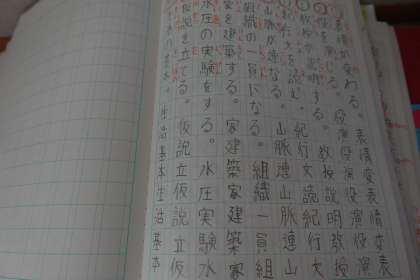 表情が変わる。表情変表情変表
役を演じる。役演役演役演役演
教授が説明する。教授説明教授
紀行文を読む。紀行文読紀行文
山脈が連なる。山脈連山脈連山
組織の一員になる。組織一員組
家を建築する。家建築家建築家
水圧の実験をする。水圧実験水
仮説を立てる。仮説立仮説立仮
の基本。生活基本生活基本